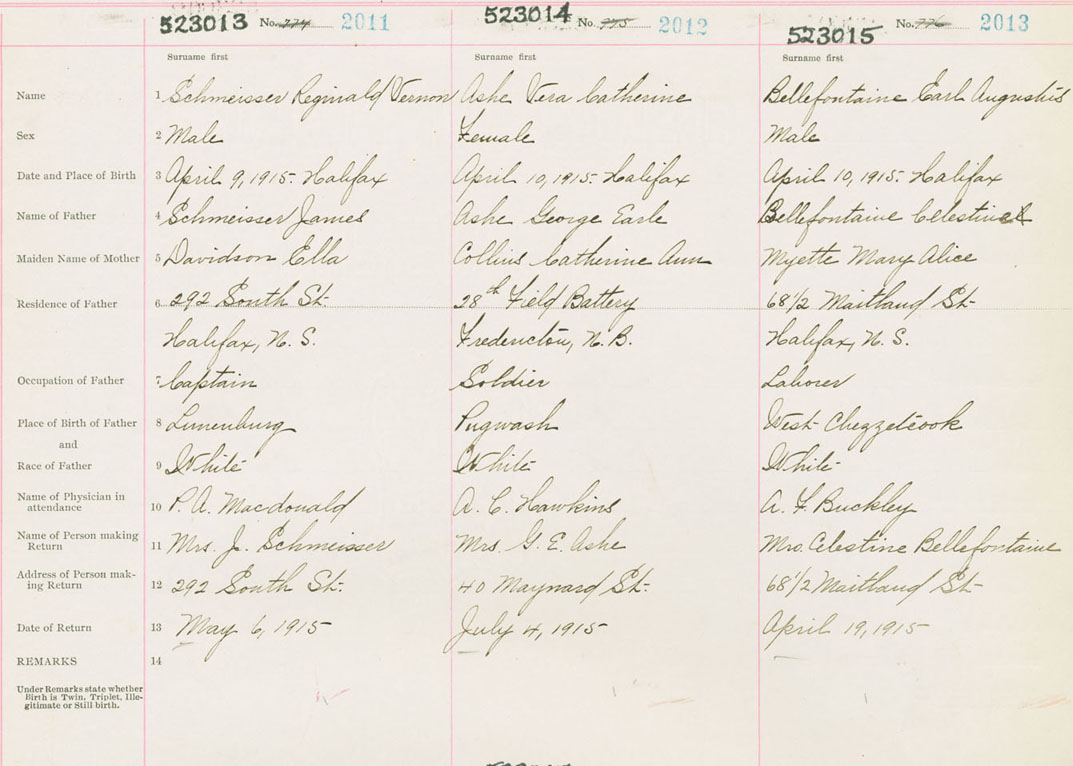 523013 No. 774 2011 523014 No. 775 2012 523015 No. 776 2013
Surname first Surname first Surname first
Name 1 Schmeisser Reginald Vernon Ashe Vera Catherine Bellefontaine Earl Augustus
Sex 2 Male Female Male
Date and Place of Birth 3 April 9, 1915. Halifax April 10, 1915. Halifax April 10, 1915. Halifax
Name of Father 4 Schmeisser James Ashe George Earle Bellefontaine Celestine
Maiden Name of Mother 5 Davidson Ella Collins Catherine Ann Myette Mary Alice
Residence of Father 6 292 South St. 28th Field Battery 68 1/2 Maitland St.
Halifax, N. S. Fredericton, N. B. Halifax, N. S.
Occupation of Father 7 Captain Soldier Laborer
Place of Birth of Father 8 Lunenburg Pugwash West Chezzetcook
and
Race of Father 9 White White White
Name of Physician in
attendance 10 P. A. Macdonald A. C. Hawkins A. F. Buckley
Name of Person making
Return 11 Mrs. J. Schmeisser Mrs. G. E. Ashe Mrs. Celestine Bellefontaine
Address of Person mak-
ing Return 12 292 South St. 40 Maynard St. 68 1/2 Maitland St
Date of Return 13 May 6, 1915 July 4, 1915 April 19, 1915
REMARKS 14
Under Remarks state whether
Birth is Twin, Triplet, Ille-
gitimate or Still birth.